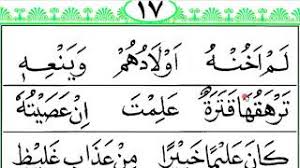 ١٧
لَمْ اَخُنْهُ اَوْلَادُهُمْ وَيَنْعِهٖ
تَرْهَقُهَا قَتَرَةٌ عَلِمَتْ اِنْ عَصَيْتُهٗ
كَانَ عَلِيْمًا خَبِيْرًا مِنْ عَذَابٍ غَلِيْظٍ